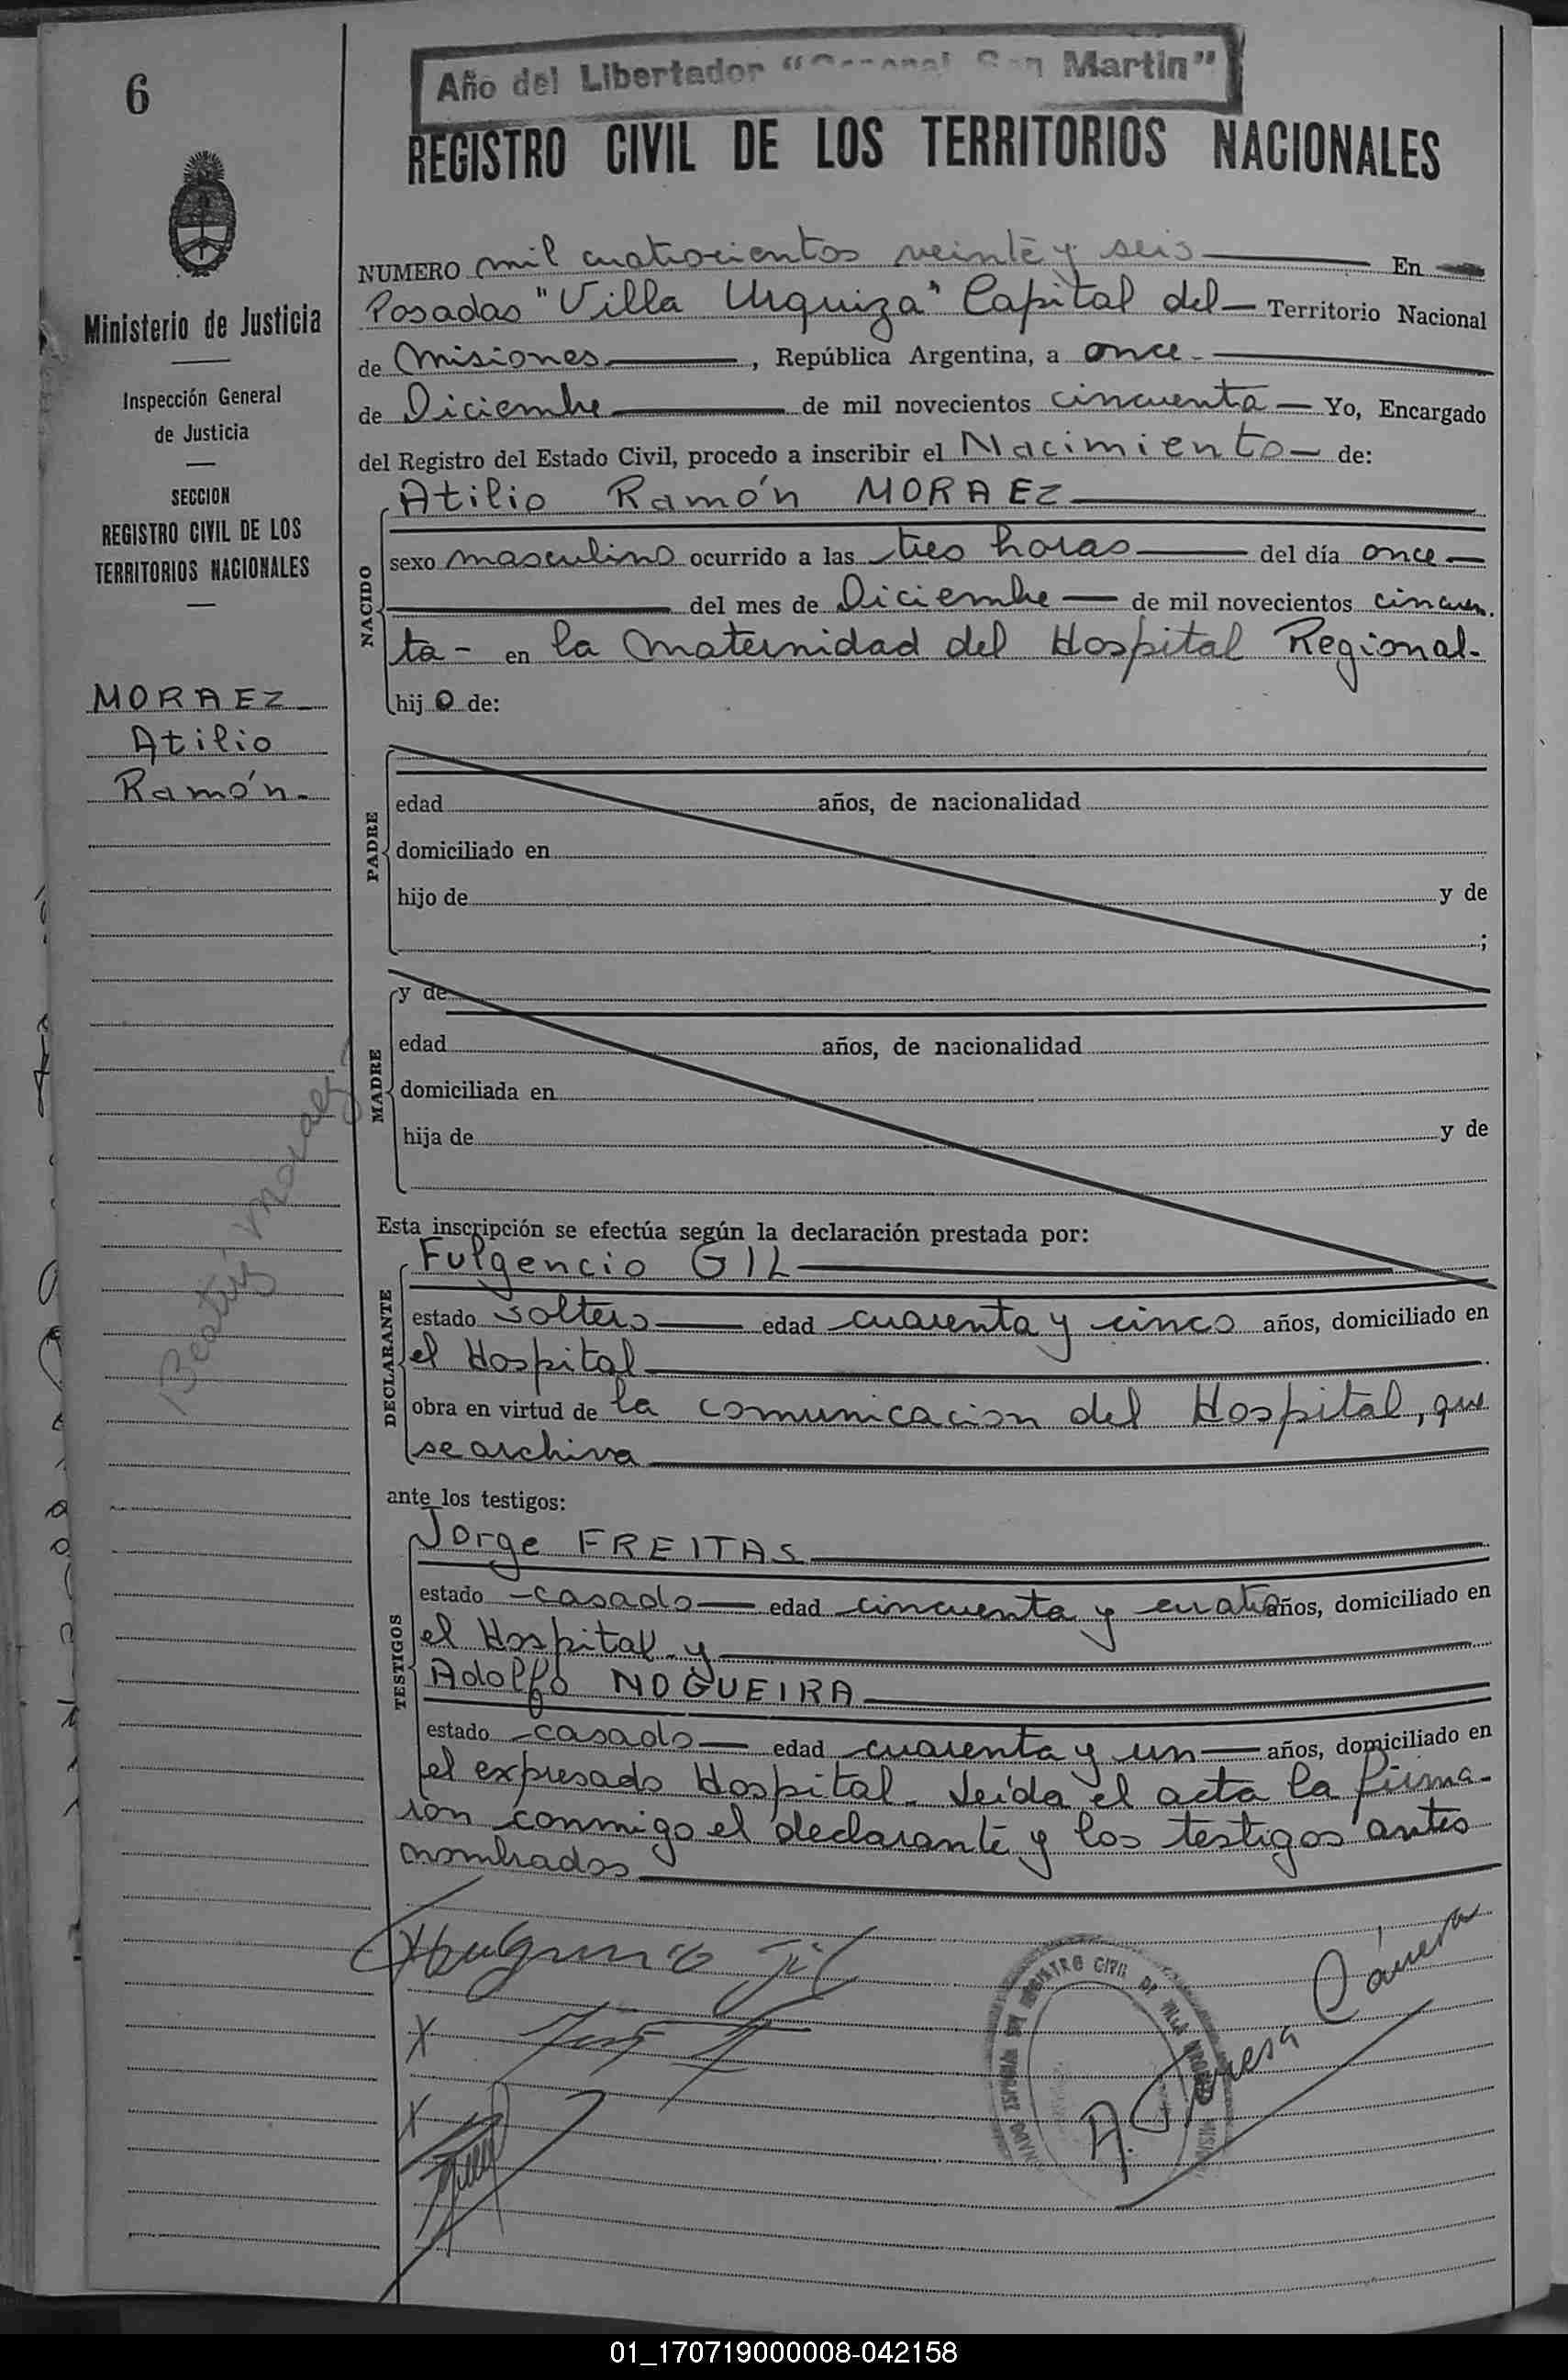 6
Año del Libertador "General San Martin"
REGISTRO CIVIL DE LOS TERRITORIOS NACIONALES
Ministerio de Justicia
Inspección General
de Justicia
SECCION
REGISTRO CIVIL DE LOS
TERRITORIOS NACIONALES
MORAEZ
Atilio
Ramón.
Beatriz Moraez
NUMERO mil cuatrocientos veinte y seis En
Posadas "Villa Urquiza" Capital del Territorio Nacional
de Misiones, República Argentina, a once
de Diciembre de mil novecientos cincuenta Yo, Encargado
del Registro del Estado Civil, procedo a inscribir el Nacimiento de:
NACIDO
Atilio Ramón MORAEZ
sexo masculino ocurrido a las tres horas del día once
del mes de Diciembre de mil novecientos cincuen
ta - en la Maternidad del Hospital Regional.
hijo de:
PADRE
edad años, de nacionalidad
domiciliado en
hijo de y de
;
MADRE
y de
edad años, de nacionalidad
domiciliada en
hija de y de
Esta inscripción se efectúa según la declaración prestada por:
DECLARANTE
Fulgencio GIL
estado soltero edad cuarenta y cinco años, domiciliado en
el Hospital
obra en virtud de la comunicacion del Hospital, que
se archiva
ante los testigos:
TESTIGOS
Jorge FREITAS
estado casado edad cincuenta y cuatro años, domiciliado en
el Hospital y
Adolfo NOGUEIRA
estado casado edad cuarenta y un años, domiciliado en
el expresado Hospital. Leída el acta la firma-
ron conmigo el declarante y los testigos antes
nombrados
Fulgencio Gil
X
X
REGISTRO CIVIL DE VILLA URQUIZA
01_170719000008-042158